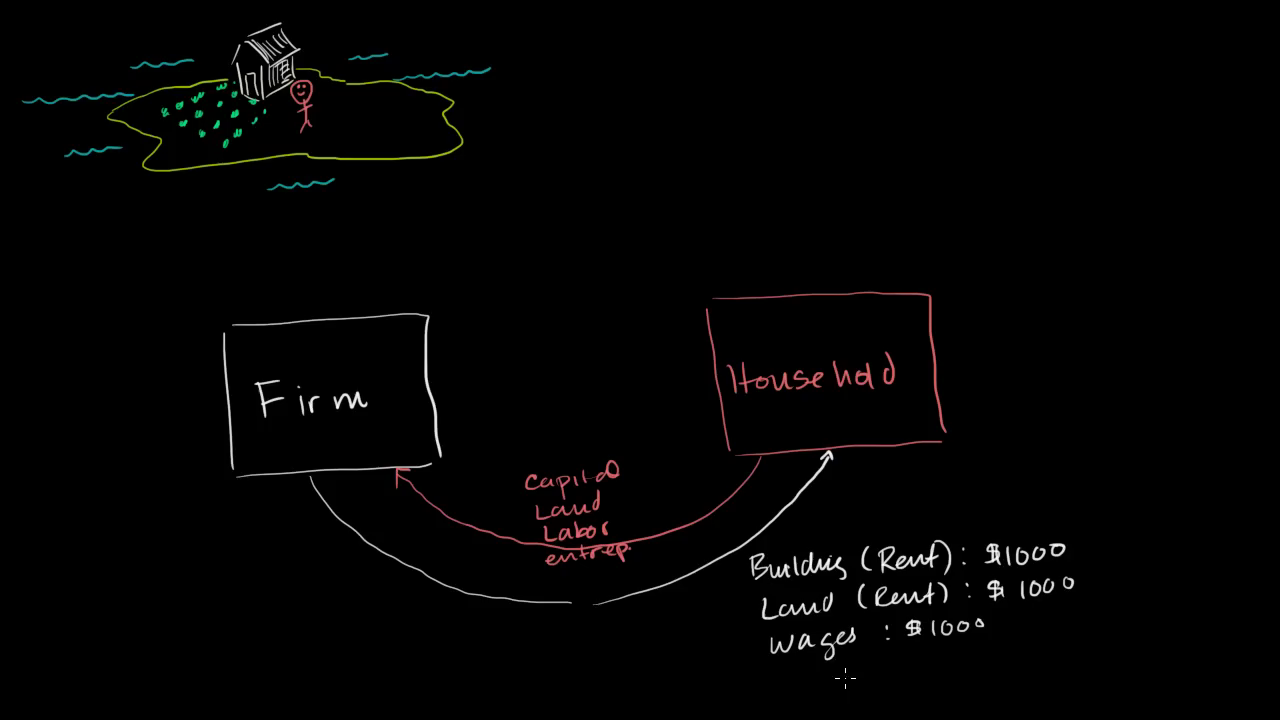 Firm
Household
Capital
Land
Labor
entrep.
Building (Rent): $1000
Land (Rent): $1000
Wages : $1000